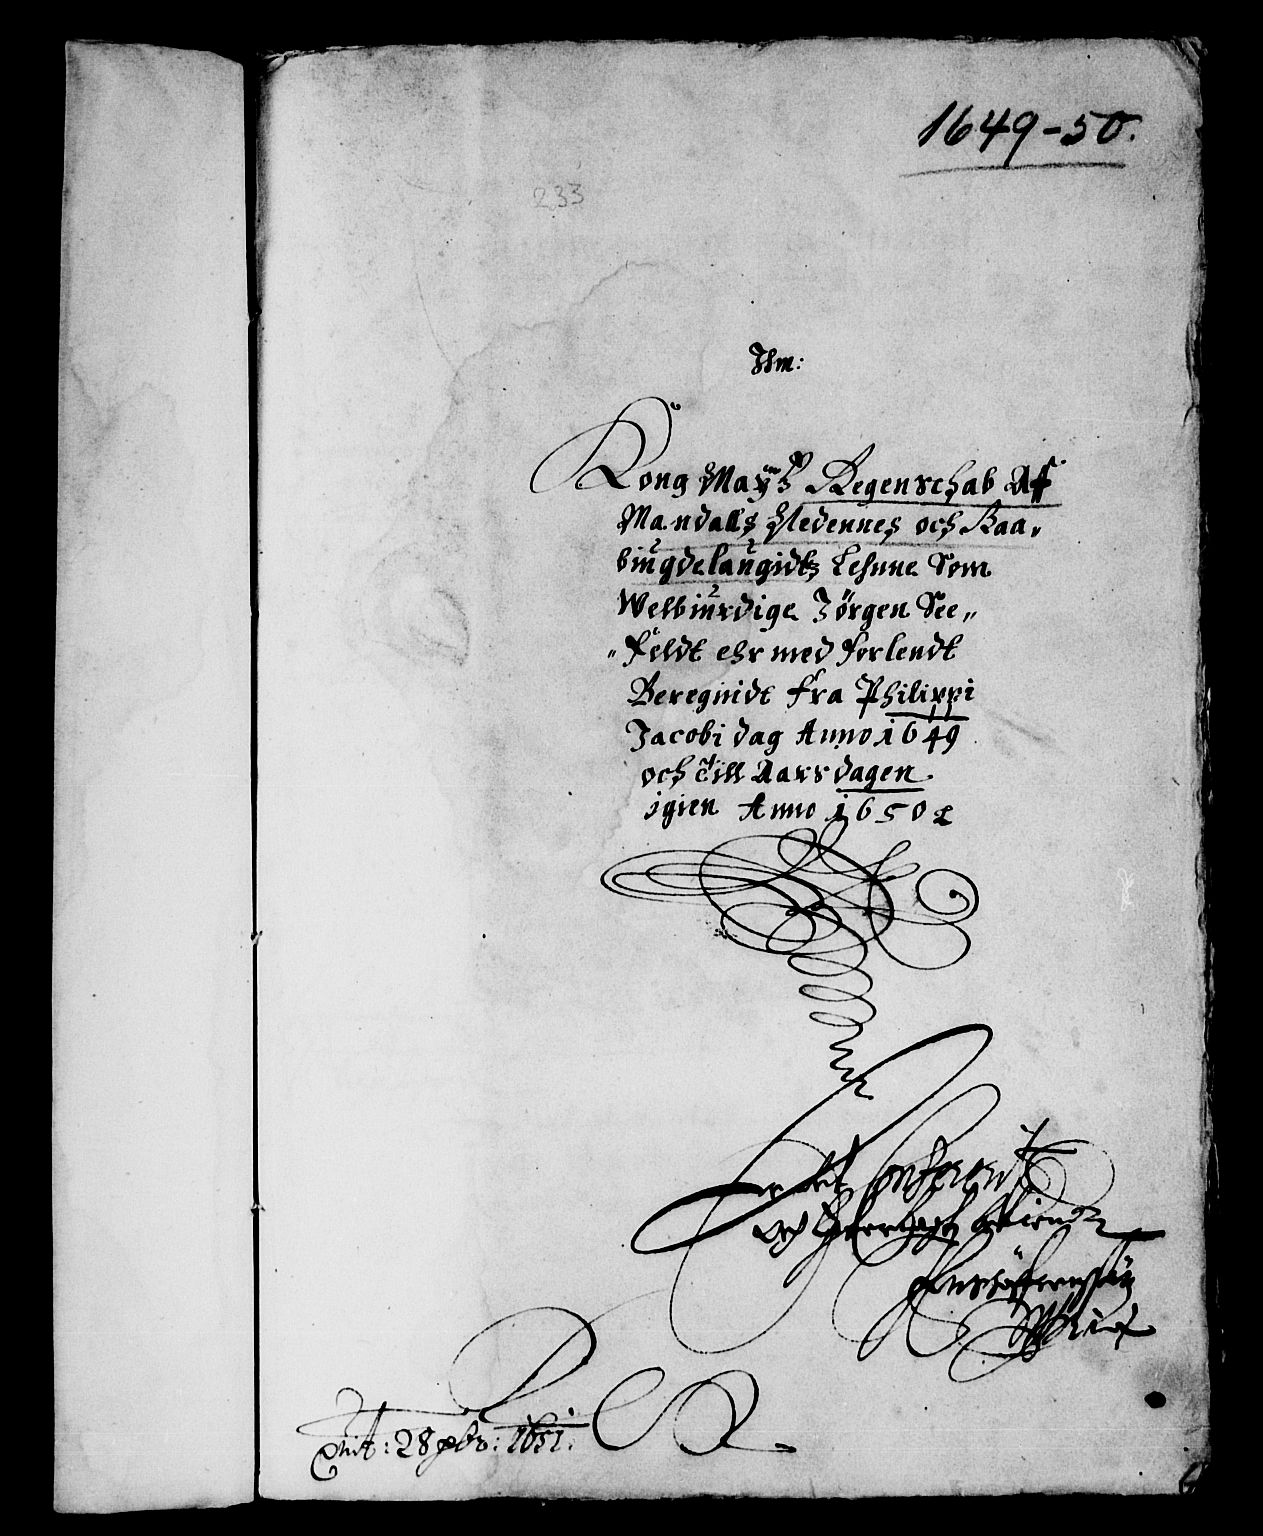 1649-50.
233
Jhm:
Kong Mayᵗᶻ Regenschab Aff
Mandalls Nedennes och Raa„
biugdelaugidtz Lehnne Som
Welbiurdige Jörgen See„
„feldt ehr med forlendt
Beregnidt fra Philippi
Jacobi dag Anno 1649
och till Aarsdagen
igien Anno 1650
Confererit
och
28 1651.